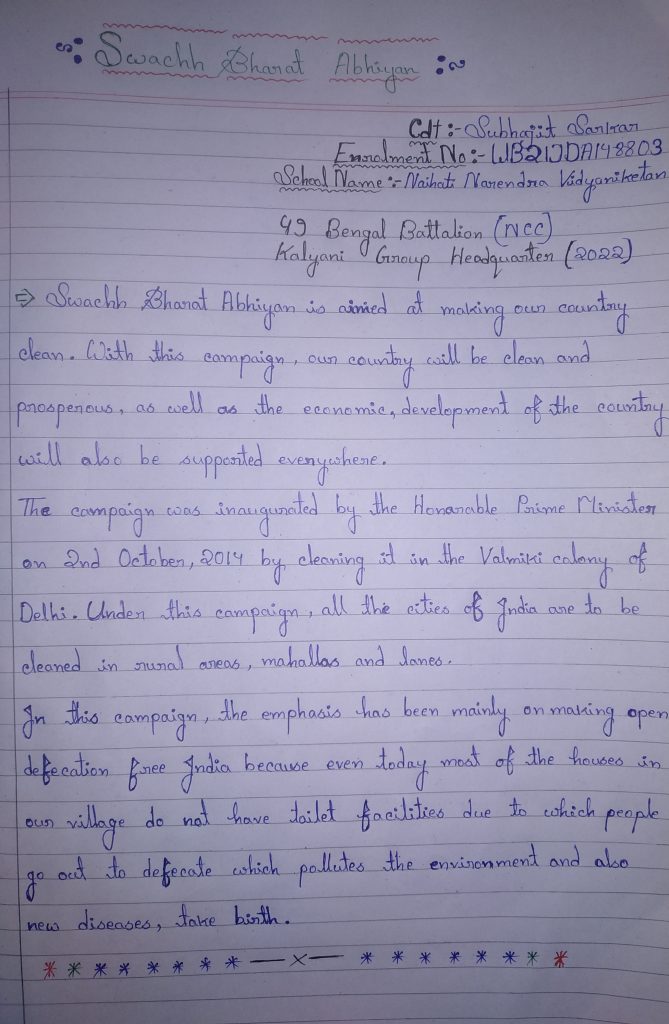 Swachh Bharat Abhiyan
Cdt :- Subhajit Sarkar
Enrolment No :- WB21JDA148803
School Name :- Naihati Narendra Vidyaniketan
49 Bengal Battalion (NCC)
Kalyani Group Headquarter (2022)
⇒ Swachh Bharat Abhiyan is aimed at making our country
clean. With this campaign, our country will be clean and
prosperous, as well as the economic, development of the country
will also be supported everywhere.
The campaign was inaugurated by the Honarable Prime Minister
on 2nd October, 2014 by cleaning it in the Valmiki colony of
Delhi. Under this campaign, all the cities of India are to be
cleaned in rural areas, mahallas and lanes.
In this campaign, the emphasis has been mainly on making open
defecation free India because even today most of the houses in
our village do not have toilet facilities due to which people
go out to defecate which pollutes the environment and also
new diseases, take birth.
* * * * * * * * —x— * * * * * * * * *